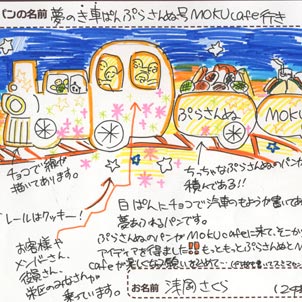 パンの名前 夢のき車ぱんぷらさんぬ号MOKUcafe行き
ぷらさんぬ
MOKU
チョコで線が
描いてあります。
ちっちゃなぷらさんぬのパンが
積んである!!
レールはクッキー!
白ぱんにチョコで汽車のもようが書いてある
夢あふれるパンです。
お客様や
メンバーさん、
役員さん、
栄匠のみなさんが
乗っています。
ぷらさんぬのパンがMOKUcafeに来て、そこから
アイディアを得ました!!もっともっとぷらさんぬとM
cafeが楽しくなる
お名前 浅岡さくら